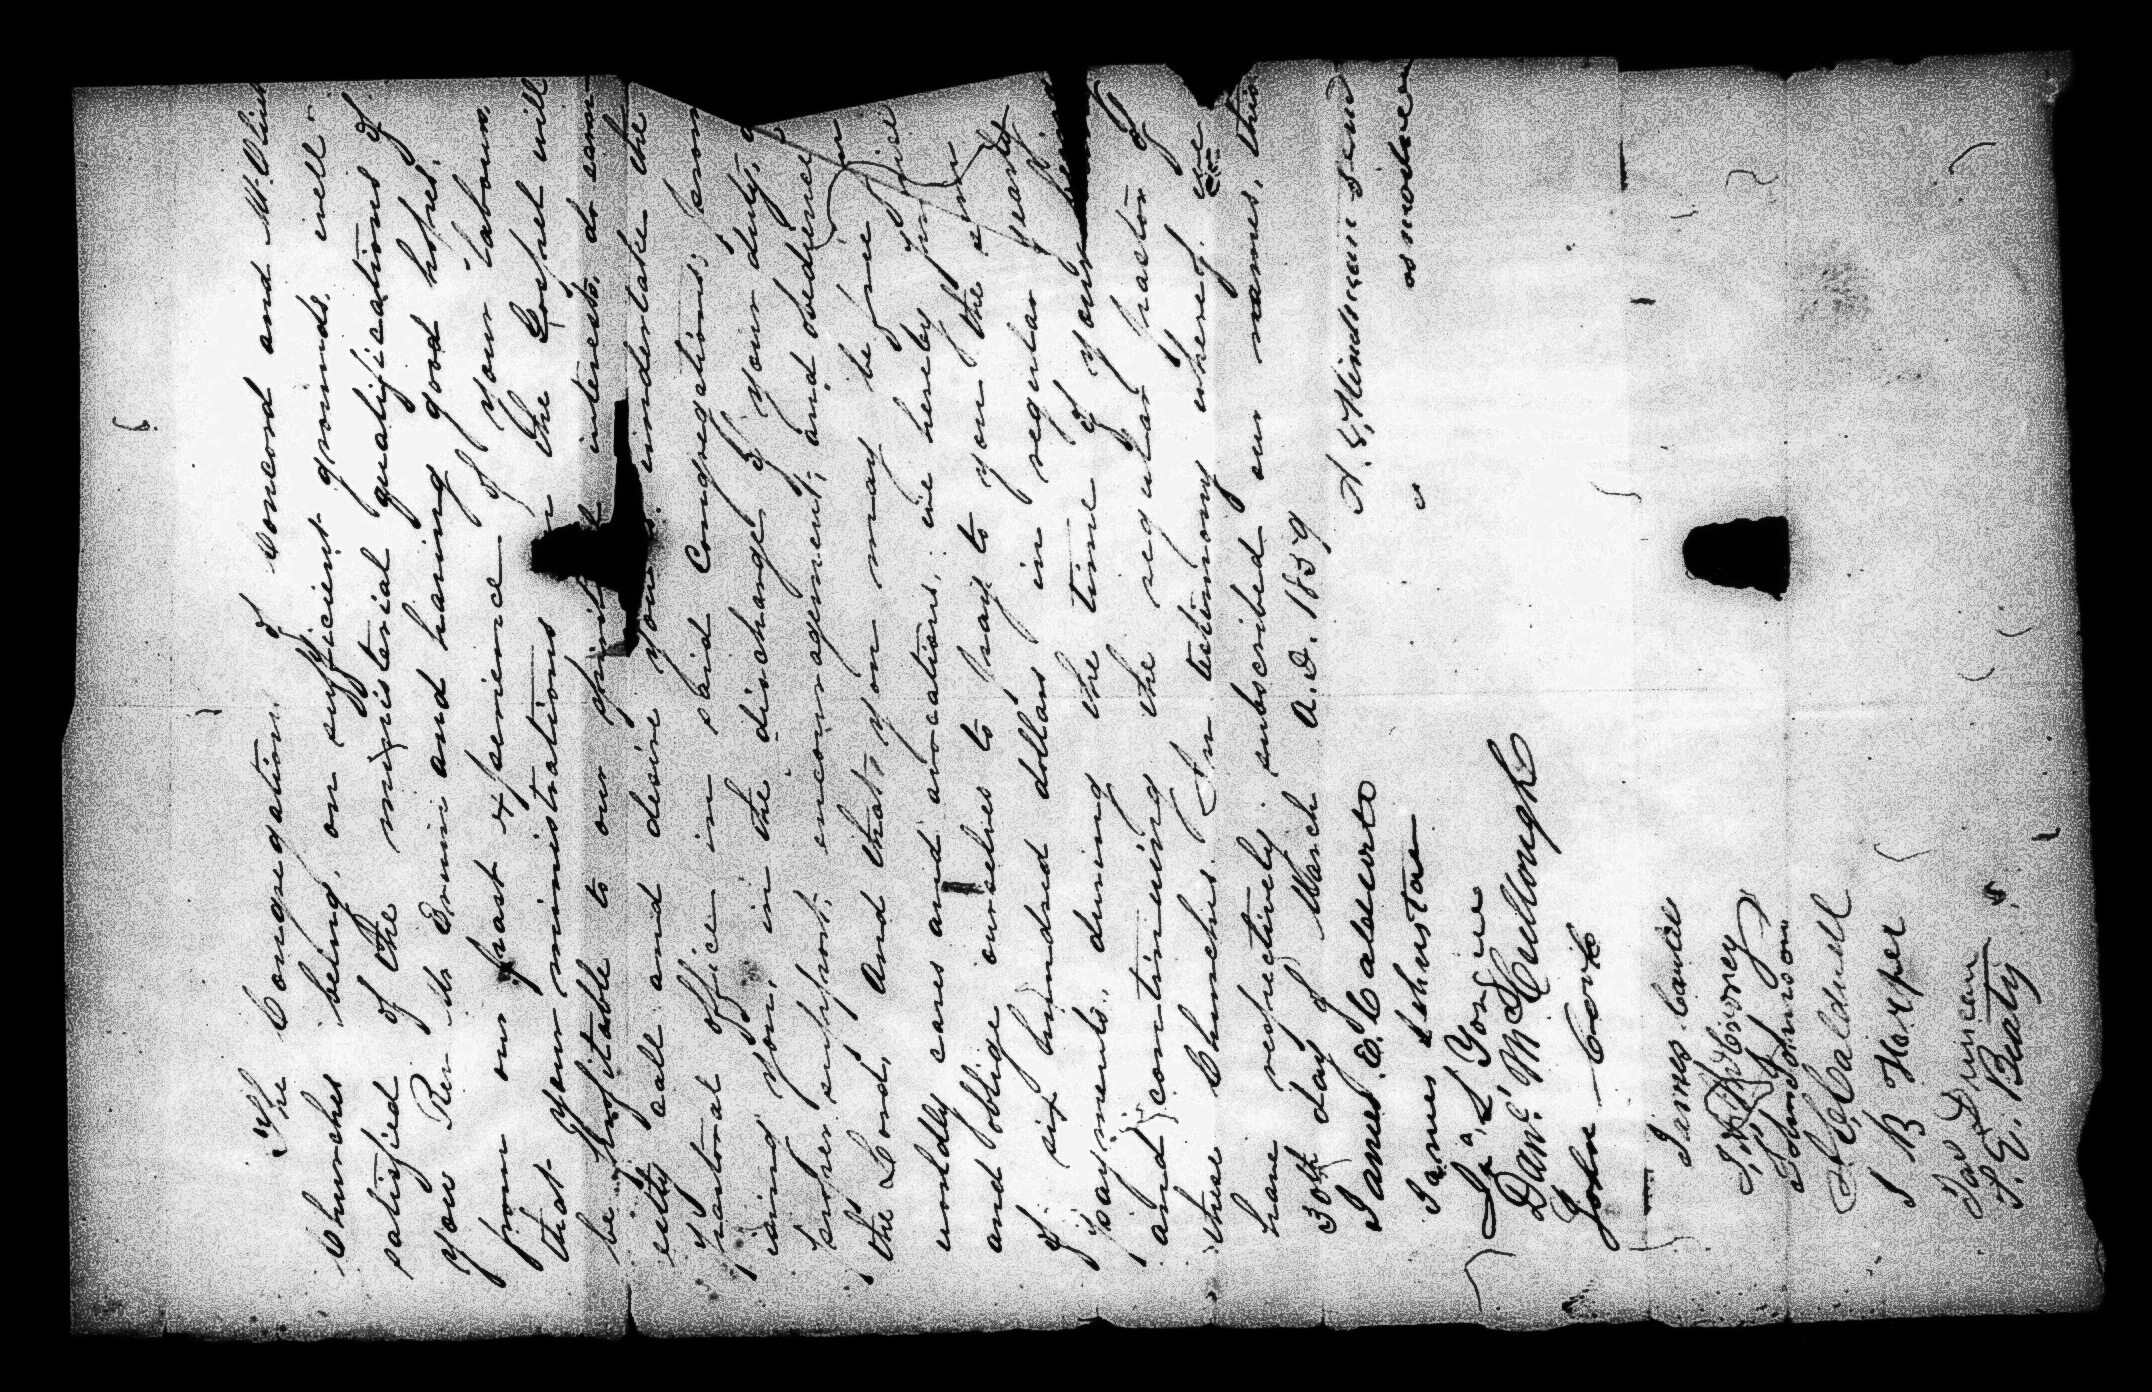 The Congregation of Concord and McClint
Churches being, on sufficient grounds, well
satisfied of the ministerial qualifications of
you Rev Mr Ervin and having good hopes,
from our past experience of your labours,
that your ministrations in the Gospel will
be profitable to our spiritual interests, do earn-
estly call and desire you undertake the
pastoral office in said Congregations; prom
ising you, in the discharge of your duty,
proper support, encouragement, and obedience in
the Lord, And that you may be free from
worldly cares and avocations, we hereby promise
and oblige ourselves to pay to you the sum
of six hundred dollars in regular yearly
payments, during the time of your being
and continuing the regular pastor of
these Churches. In testimony whereof we
have respectively subscribed our names, this
30th day of March A.D. 1859
James E. Caldwell
James Johnston
Daniel McCullough
John Cork
James
Johnson
Caldwell
J B Harper
Jas Duncan
J. E. Beaty